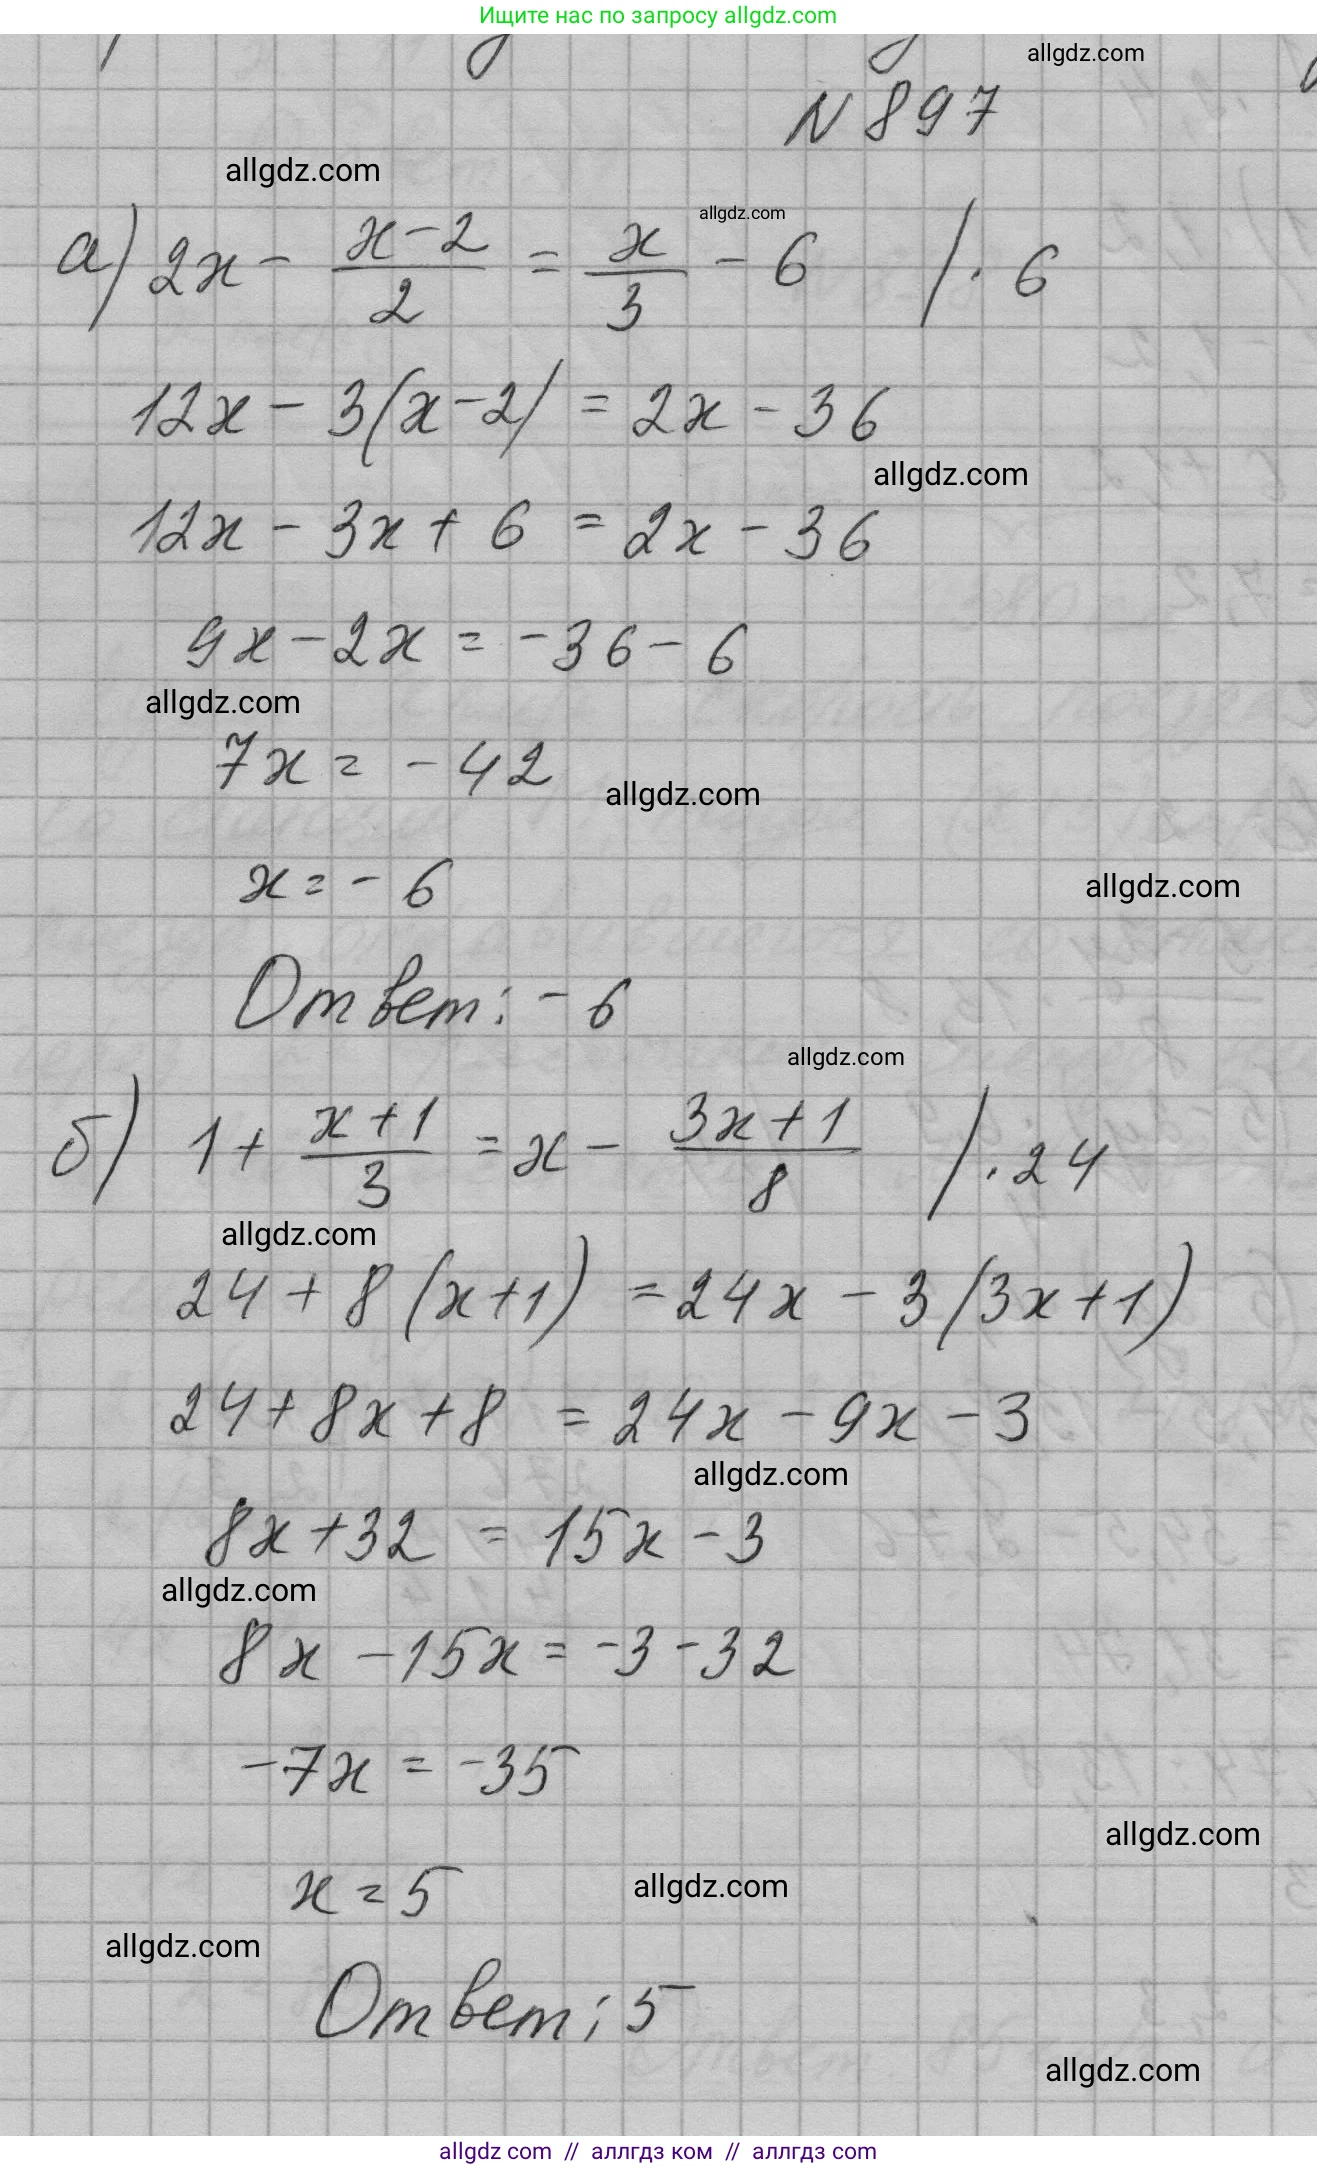 Ищите нас по запросу allgdz.com
allgdz.com
N 897
allgdz.com
allgdz.com
а) 2x - (x-2)/2 = x/3 - 6 / · 6
12x - 3(x-2) = 2x - 36
allgdz.com
12x - 3x + 6 = 2x - 36
9x - 2x = -36 - 6
allgdz.com
7x = -42
allgdz.com
x = -6
allgdz.com
Ответ: -6
allgdz.com
б) 1 + (x+1)/3 = x - (3x+1)/8 / · 24
allgdz.com
24 + 8(x+1) = 24x - 3(3x+1)
24 + 8x + 8 = 24x - 9x - 3
allgdz.com
8x + 32 = 15x - 3
allgdz.com
8x - 15x = -3 - 32
-7x = -35
allgdz.com
x = 5
allgdz.com
allgdz.com
Ответ: 5
allgdz.com
allgdz com // аллгдз ком // аллгдз com